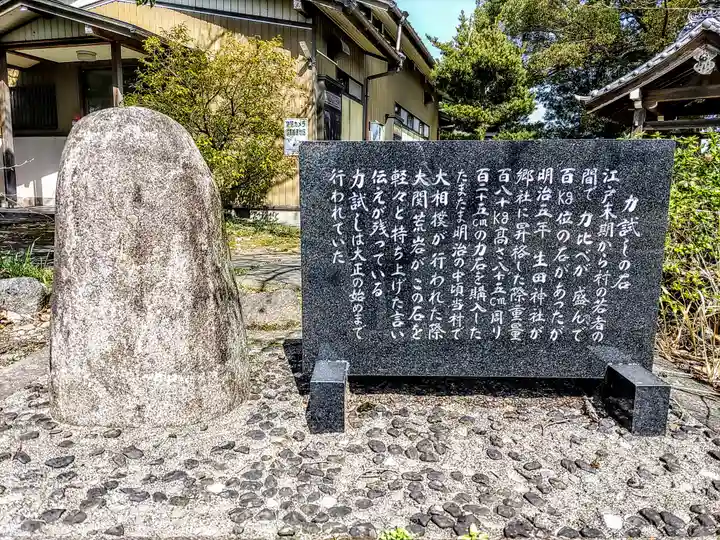 力試しの石
江戸末期から村の若者の
間で 力比べが 盛んで
百kg位の石があったが
明治五年 生田神社が
郷社に昇格した際重量
百八十kg高さ八十五cm周り
百二十五cmの力石を購入した
たまたま明治の中頃当村で
大相撲が 行われた際
大関荒岩がこの石を
軽々と持ち上げた言い
伝えが残っている
力試しは大正の始めまで
行われていた
防犯カメラ